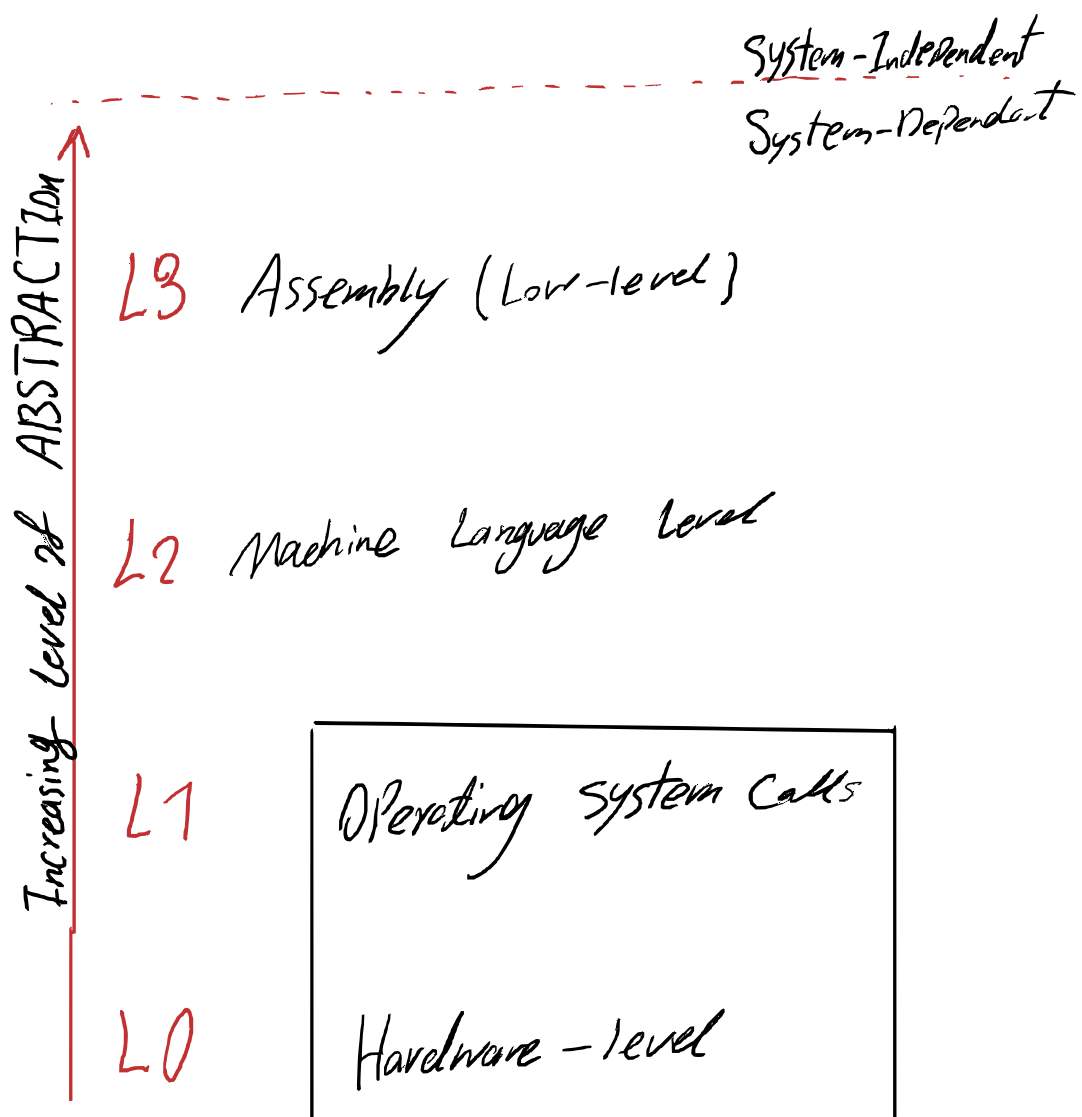 System-Independent
System-Dependent
Increasing level of ABSTRACTION
L3 Assembly (Low-level)
L2 Machine Language level
L1 Operating system calls
L0 Hardware-level